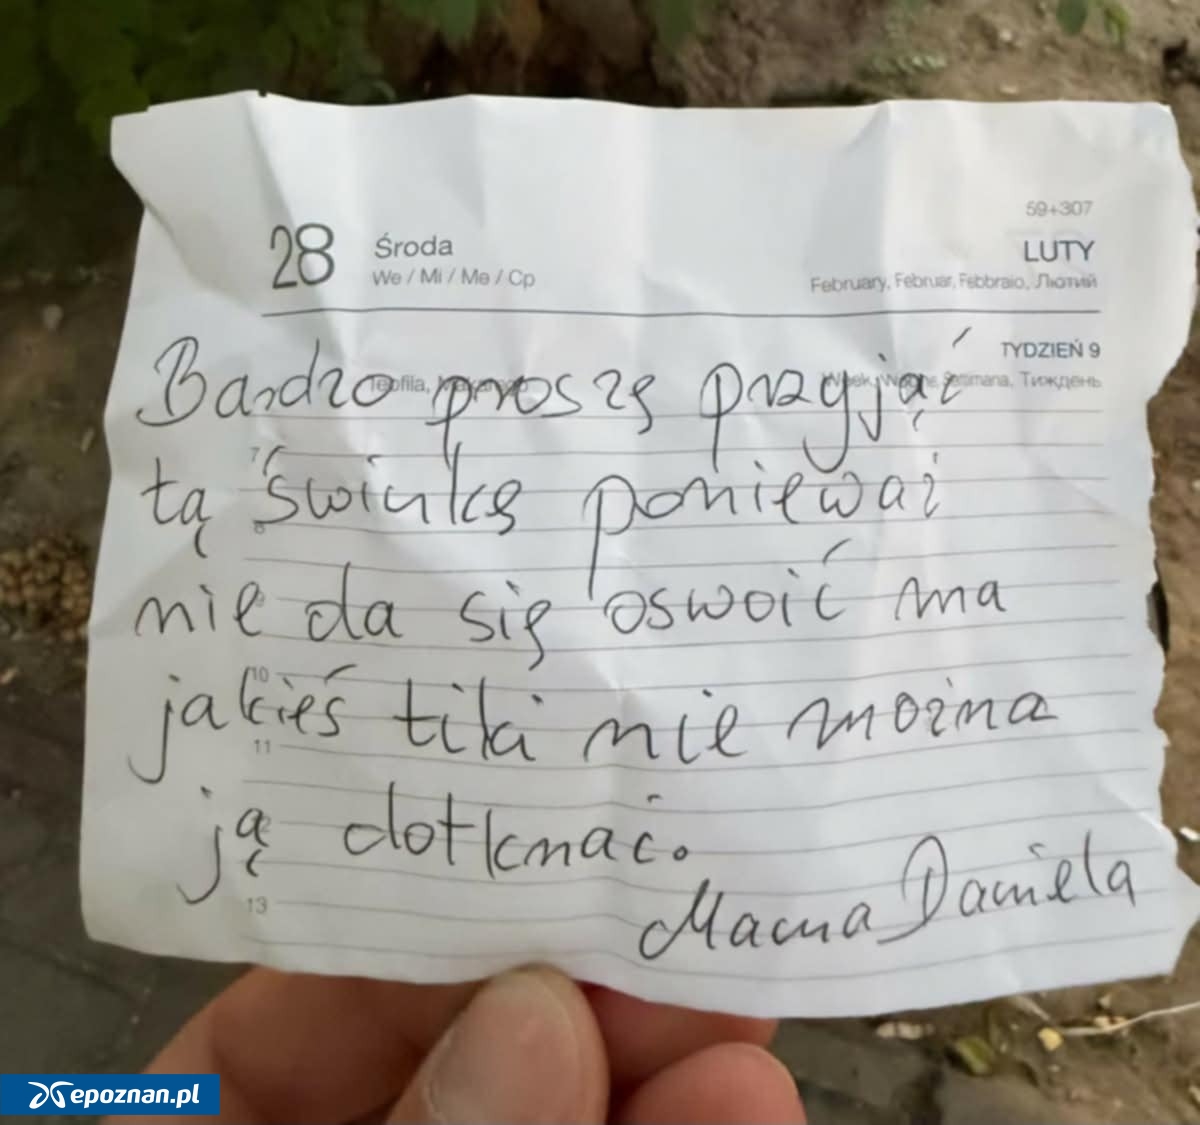 59+307
28 Środa LUTY
We / Mi / Me / Cp February, Februar, Febbraio, Лютий
TYDZIEŃ 9
Teofila, Makarego Week, Woche, Settimana, Тиждень
Bardzo proszę przyjąć
7
tą świnkę ponieważ
8
nie da się oswoić ma
10
jakieś tiki nie można
11
ją dotknać.
13
Mama Daniela
epoznan.pl